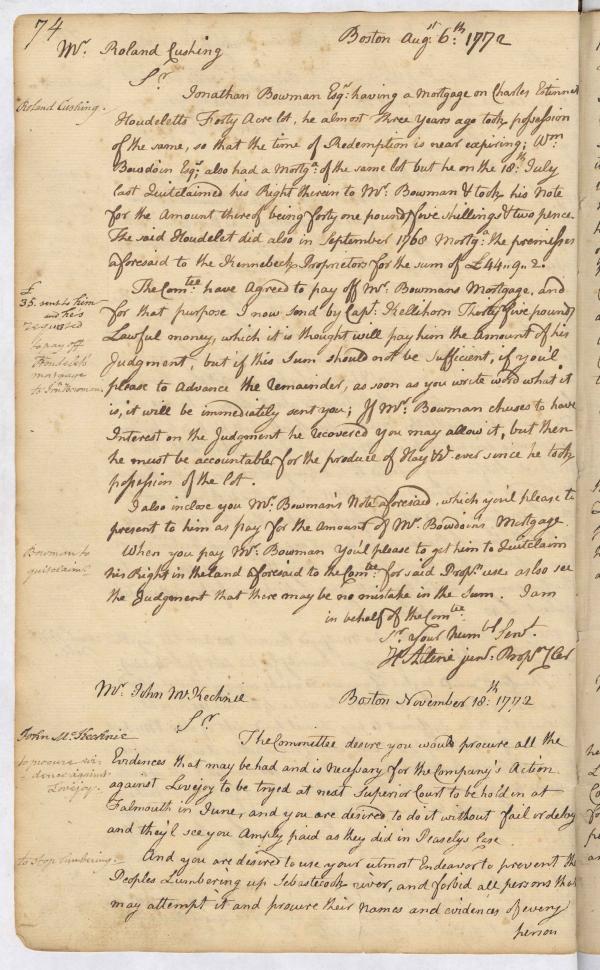 74
Boston Augst. 6th. 1772
Mr. Roland Cushing
Sr.
Roland Cushing.
Jonathan Bowman Esqr. having a Mortgage on Charles Estiennes
Houdeletts Forty Acre lot, he almost three years ago took possession
of the same, so that the time of Redemption is near expiring; Wm
Bowdoin Esqr. also had a Mortga. of the same lot but he on the 18th. July
last Quitclaimed his Right therein to Mr. Bowman & took his Note
for the Amount thereof being forty one pounds five shillings & two pence.
The said Houdelet did also in September 1768 Mortga. the premisses
aforesaid to the Kennebeck Proprietors for the sum of £44..9..2.
The Comtee. have Agreed to pay off Mr. Bowmans Mortgage, and
£
35. sent to him
and he's
requested
to pay off
Houdelets
mortgage
to Jna. Bowman
for that purpose I now send by Capt. Kellihorn Thirty five pounds
Lawful money, which it is thought will pay him the Amount of his
Judgment, but if this Sum should not be sufficient, if you'l
please to Advance the Remainder, as soon as you write word what it
is, it will be immediately sent you; If Mr. Bowman chuses to have
Interest on the Judgment he recovered you may allow it, but then
he must be accountable for the produce of Hay &c. ever since he took
possession of the lot.
I also inclose you Mr. Bowman's Note aforesaid, which you'l please to
present to him as pay for the Amount of Mr. Bowdoin's Mortgage.
Bowman to
quitclaim
When you pay Mr. Bowman You'l please to get him to Quitclaim
his Right in the land aforesaid to the Comtee. for said Propr. use as also see
the Judgment that there may be no mistake in the Sum. I am
in behalf of the Comtee.
Sr. Your humbl Servt.
Hy Alline junr. Propr. Cler
Mr. John McKechnie
Boston November 18th. 1772
Sr.
John McKechnie
to procure evi-
dence against
Lovejoy.
The Committee desire you would procure all the
Evidences that may be had and is necessary for the Company's Action
against Lovejoy to be tryed at next Superior Court to be hold in at
Falmouth in June, and you are desired to do it without fail or delay
and they'l see you Amply paid as they did in Peaselys Case
to stop lumbering.
And you are desired to use your utmost Endeavor to prevent the
Peoples Lumbering up Sebastecook river, and forbid all persons that
may attempt it and procure their names and evidences of every
person